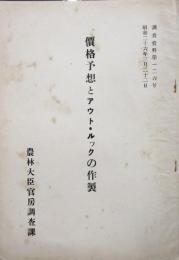 調査資料第一二六号
昭和二十六年二月二十二日
價格予想とアウト・ルックの作製
農林大臣官房調査課